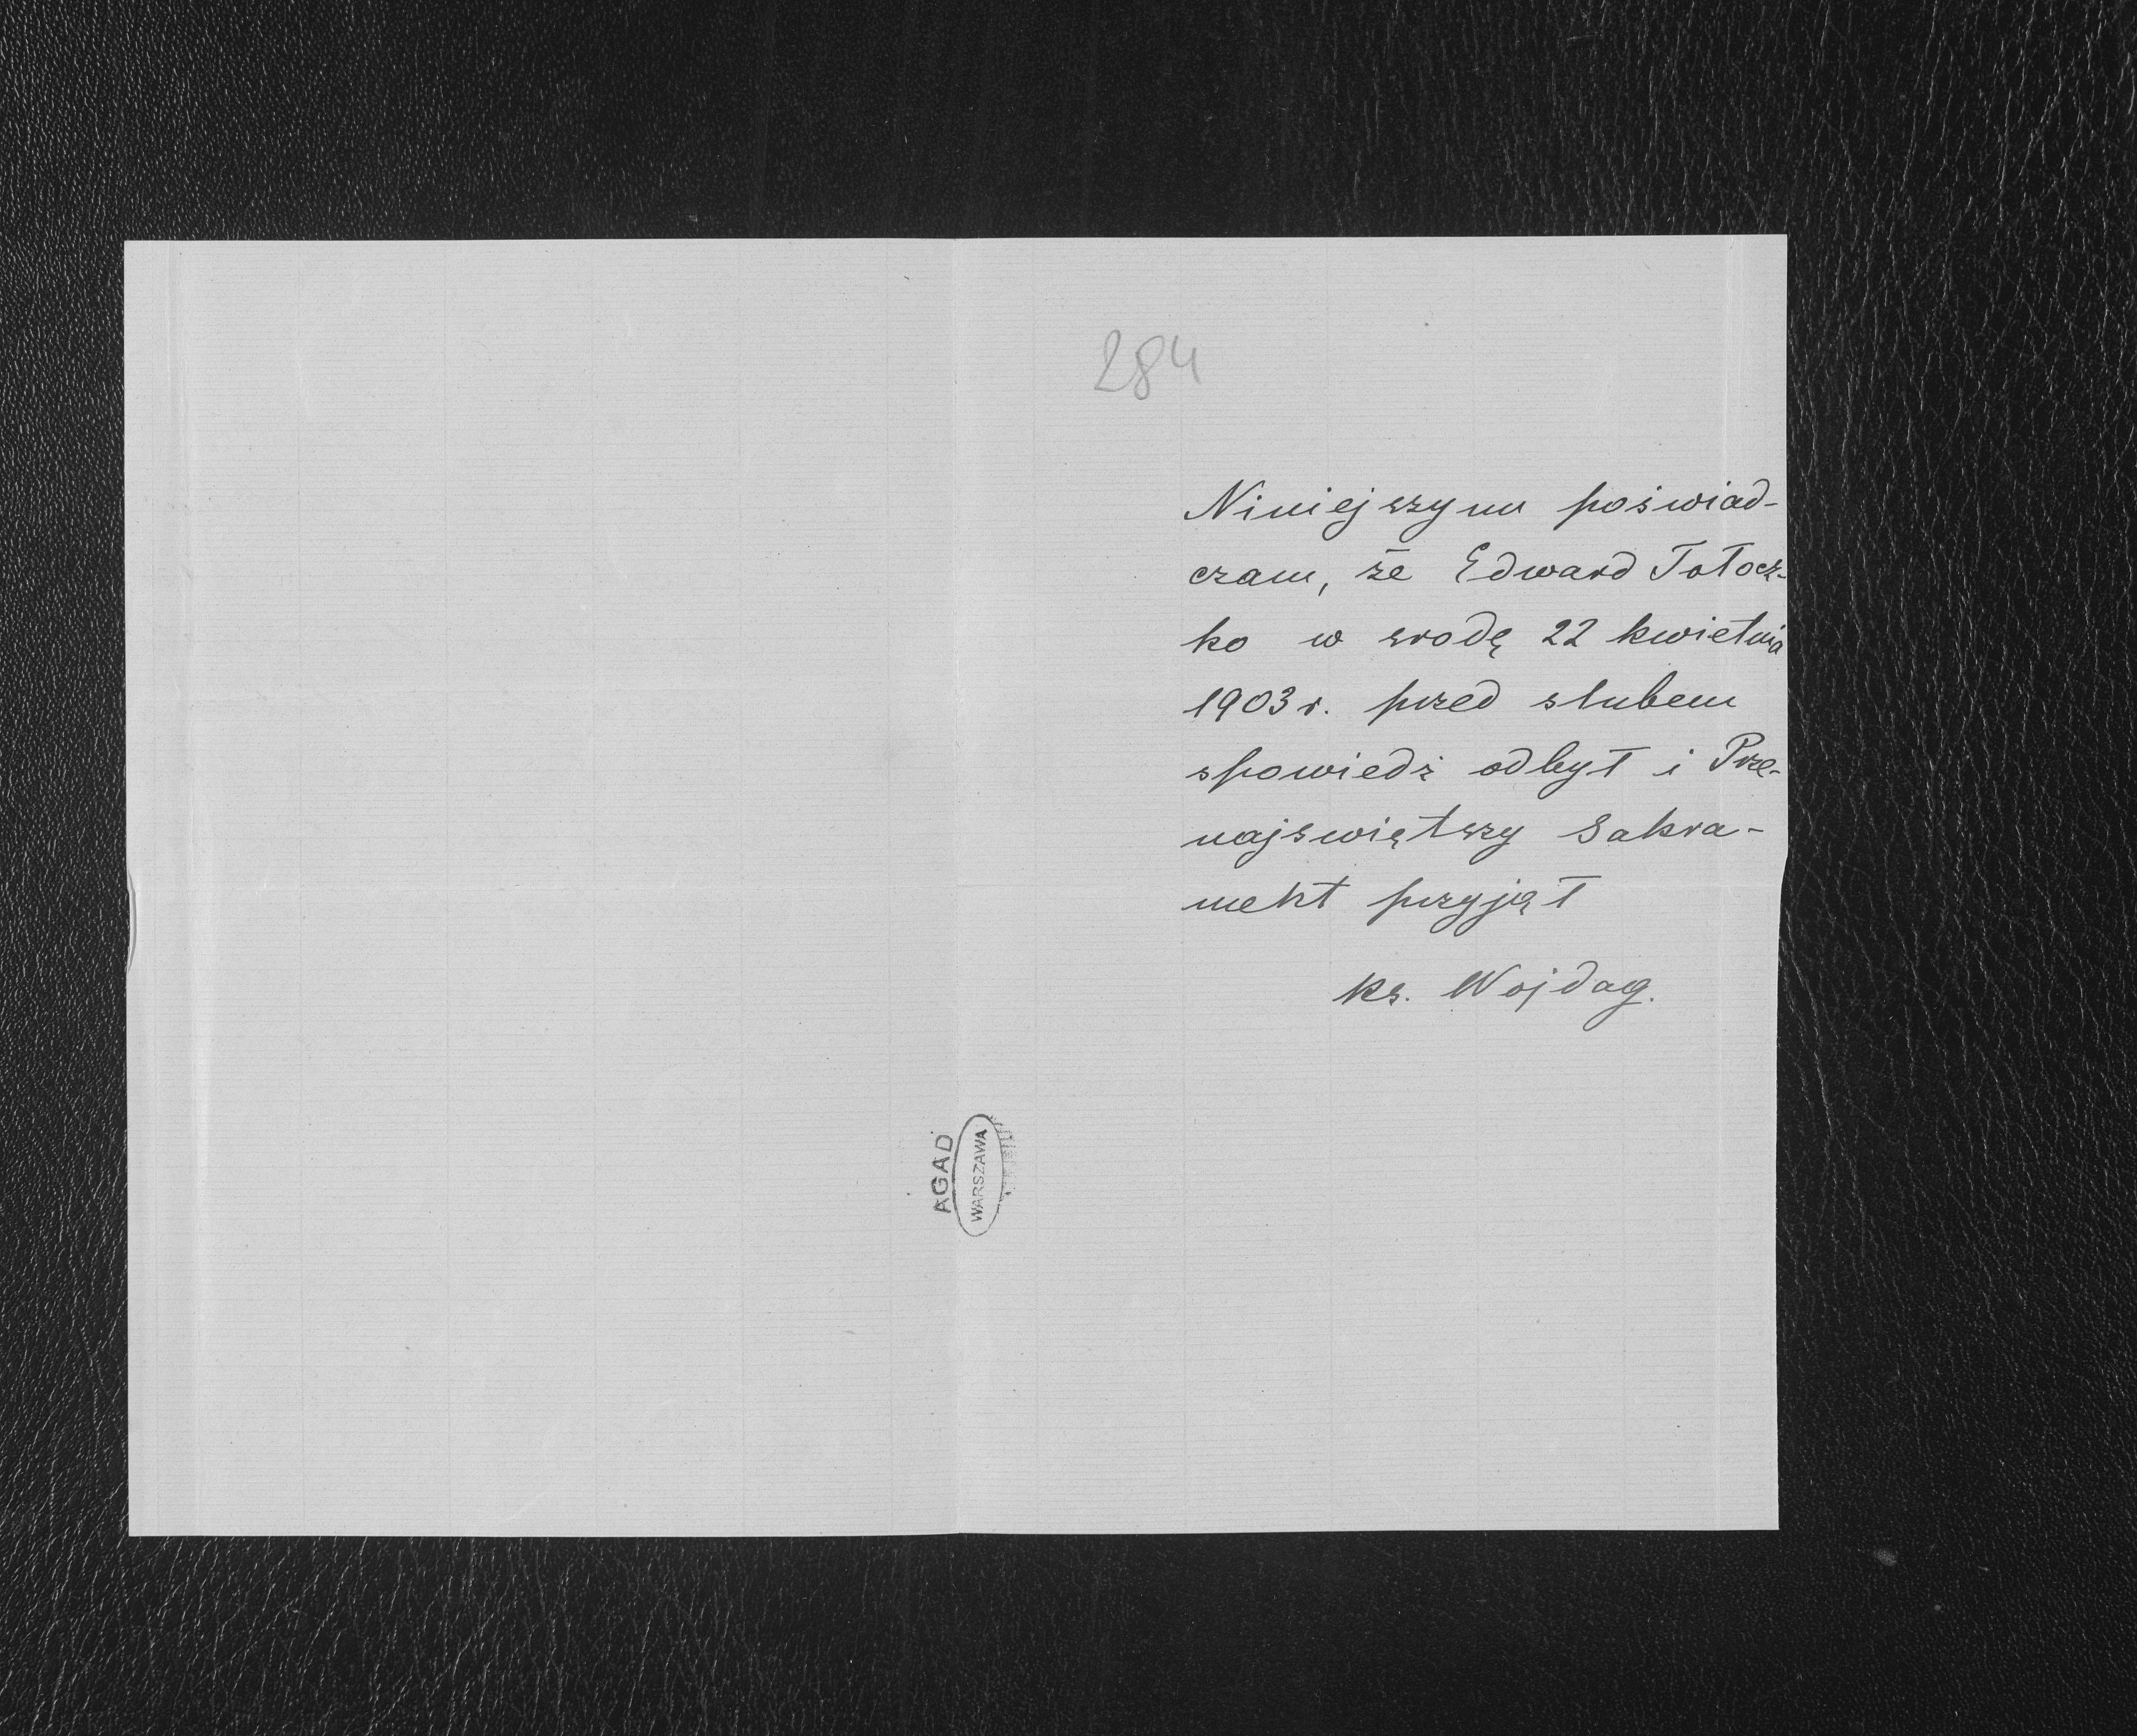 284
Niniejszym poświad-
czam, że Edward Tołocz-
ko w srodę 22 kwietnia
1903 r. przed slubem
spowiedź odbył i Prze-
najswiętszy Sakra-
ment przyjął
ks. Wojdag.
AGAD
WARSZAWA